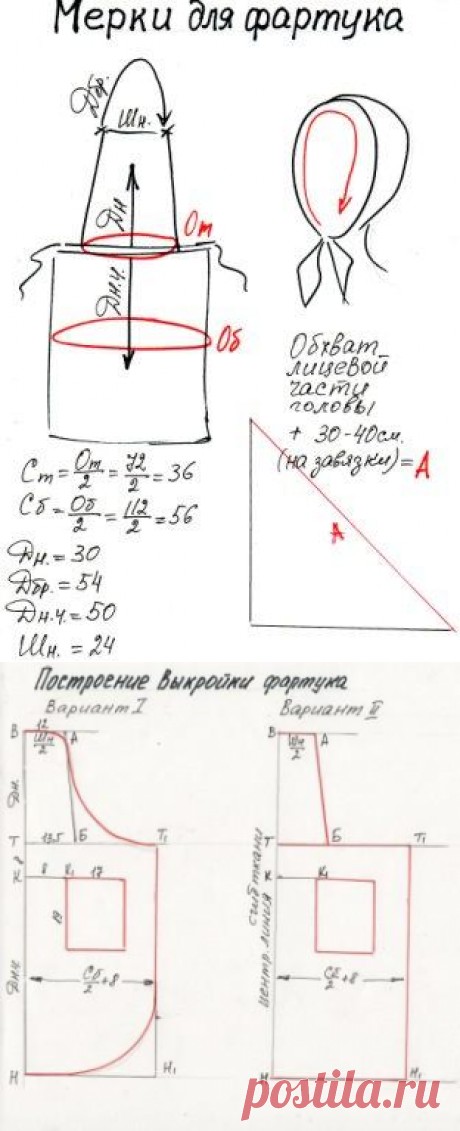 Мерки для фартука
Дбр.
Шн.
Дн
От
Дн.ч.
Об
Обхват
лицевой
части
головы
+ 30-40см.
(на завязки) = А
А
Ст = От/2 = 72/2 = 36
Сб = Об/2 = 112/2 = 56
Дн. = 30
Дбр. = 54
Дн.ч. = 50
Шн. = 24
Построение выкройки фартука
Вариант I
В 12 А
Шн/2
Дн.
Т 13.5 Б Т1
8
К 8 К1 17
19
Сб/2 + 8
Дн.ч
Н Н1
Вариант II
В А
Шн/2
Т Б Т1
К К1
сгиб ткани
центр. линия
Сб/2 + 8
Н Н1
postila.ru